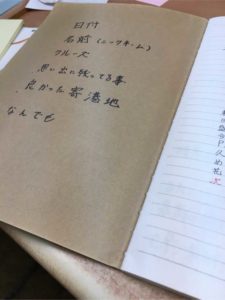 日付
名前（ニックネーム）
クルーズ
思い出に残ってる事
良かった寄港地
なんでも